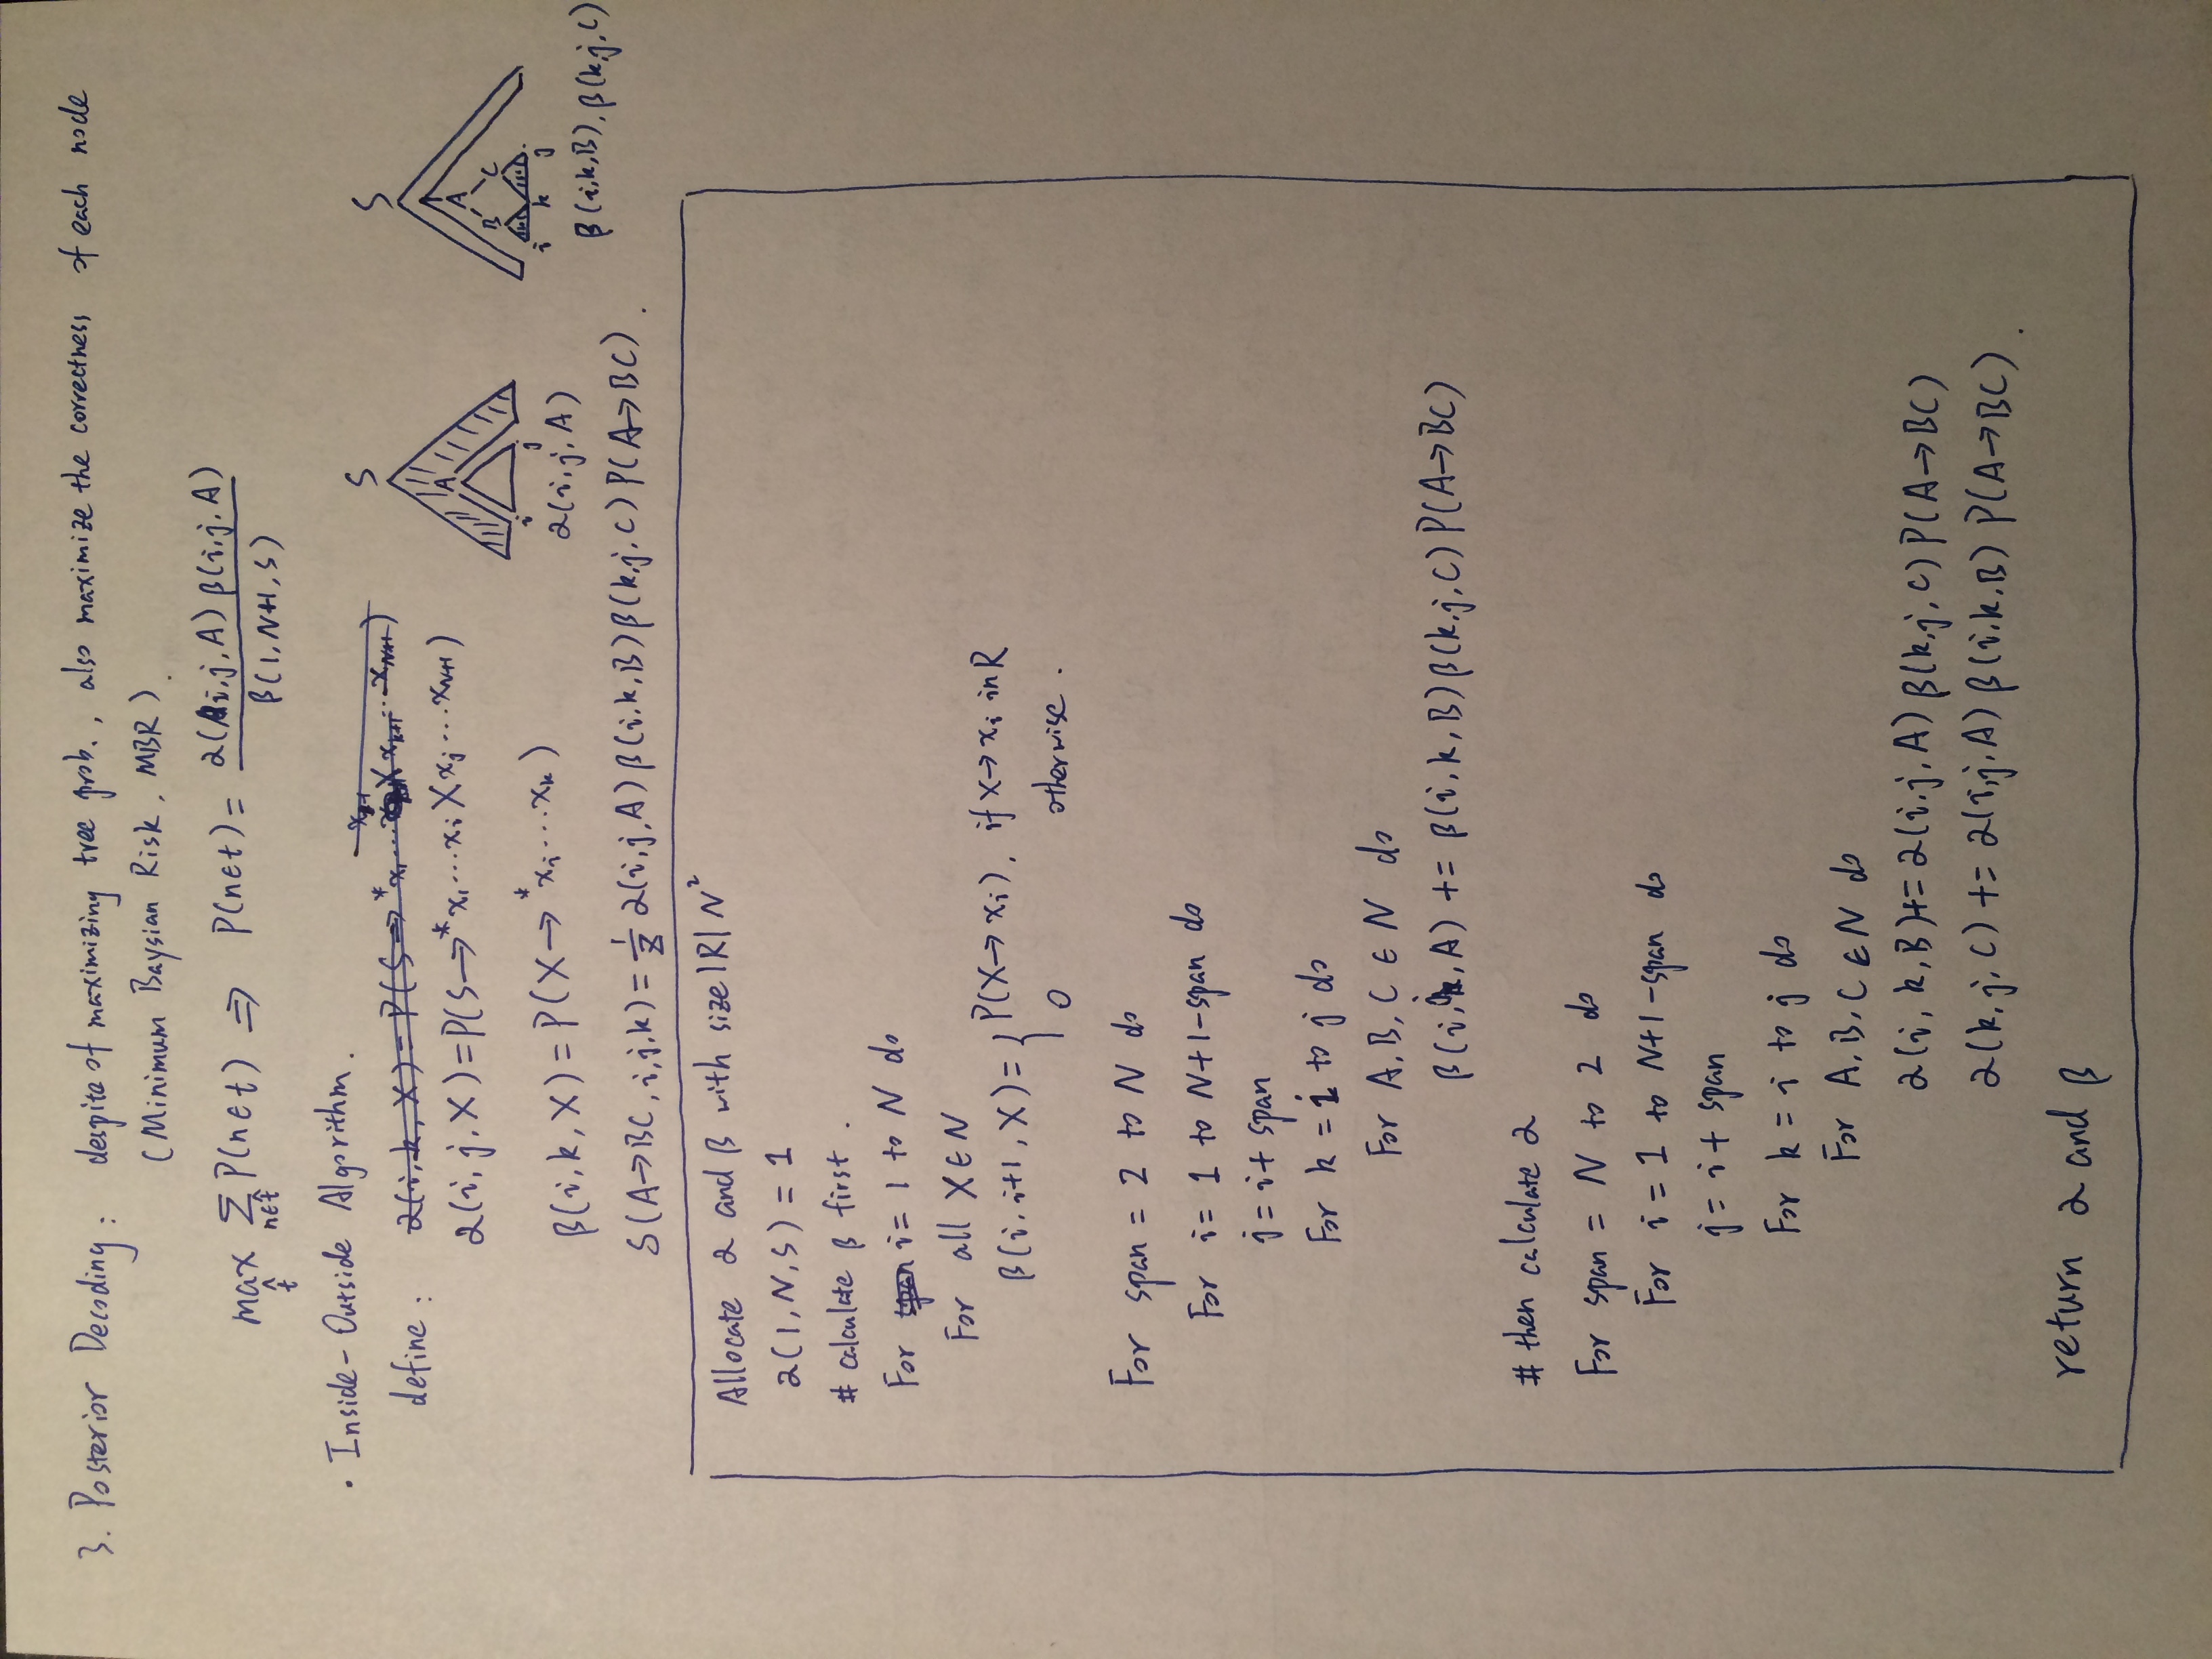 3. Posterior Decoding: despite of maximizing tree prob., also maximize the correctness of each node
(Minimum Baysian Risk, MBR).
max_t̂ Σ_{n∈t̂} P(n∈t) ⇒ P(n∈t) = α(i,j,A) β(i,j,A) / β(1,N+1,S)
· Inside-Outside Algorithm.
define: α(i,k,X)=P(S→*x₁...
α(i,j,X)=P(S→*x₁...xᵢ X xⱼ...x_{N+1})
β(i,k,X)=P(X→*xᵢ...xₖ)
S
A
i j
α(i,j,A)
S
A
B C
i k j
β(i,k,B), β(k,j,C)
δ(A→BC, i,j,k)=1/Z α(i,j,A) β(i,k,B) β(k,j,C) P(A→BC).
Allocate α and β with size |R| N²
α(1,N,S) = 1
# calculate β first.
For span i= 1 to N do
For all X∈N
β(i,i+1,X)={ P(X→xᵢ), if X→xᵢ in R
0 otherwise.
For span = 2 to N do
For i= 1 to N+1-span do
j=i+ span
For k = i to j do
For A,B,C ∈ N do
β(i,j,A) += β(i,k,B) β(k,j,C) P(A→BC)
# then calculate α
For span = N to 2 do
For i = 1 to N+1-span do
j= i+ span
For k = i to j do
For A,B,C ∈ N do
α(i,k,B)+= α(i,j,A) β(k,j,C) P(A→BC)
α(k,j,C) += α(i,j,A) β(i,k,B) P(A→BC).
return α and β